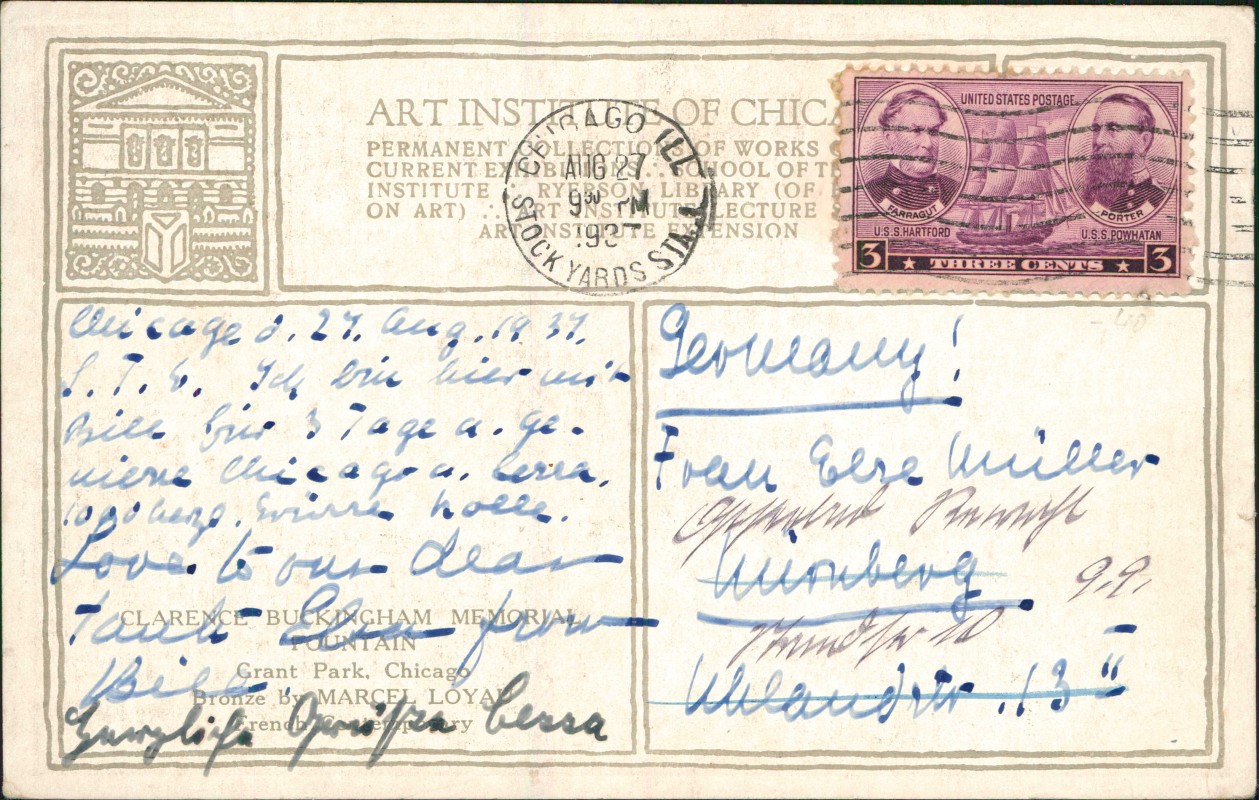 ART INSTITUTE OF CHICA
PERMANENT COLLECTIONS OF WORKS
CURRENT EXHIBITIONS... SCHOOL OF T
INSTITUTE .. RYERSON LIBRARY (OF
ON ART) .. ART INSTITUTE LECTURE
ART INSTITUTE EXTENSION
CHICAGO ILL
AUG 27
9 30 PM
193
STOCK YARDS STA.
UNITED STATES POSTAGE
FARRAGUT
PORTER
U.S.S. HARTFORD
U.S.S. POWHATAN
3 THREE CENTS 3
Chicago d. 27. Aug. 1937.
L. T. E. Ich bin hier mit
Bill für 3 Tage u. ge-
nieße Chicago u.
1000 herzl. Grüsse
Love to our dear
Tante Else from
Bill.
Herzliche Grüße
CLARENCE BUCKINGHAM MEMORIAL
FOUNTAIN
Grant Park, Chicago
Bronze by MARCEL LOYAU
French Contemporary
-40
Germany!
Frau Else Müller
Nürnberg
9.9.
Uhlandstr. 13 II